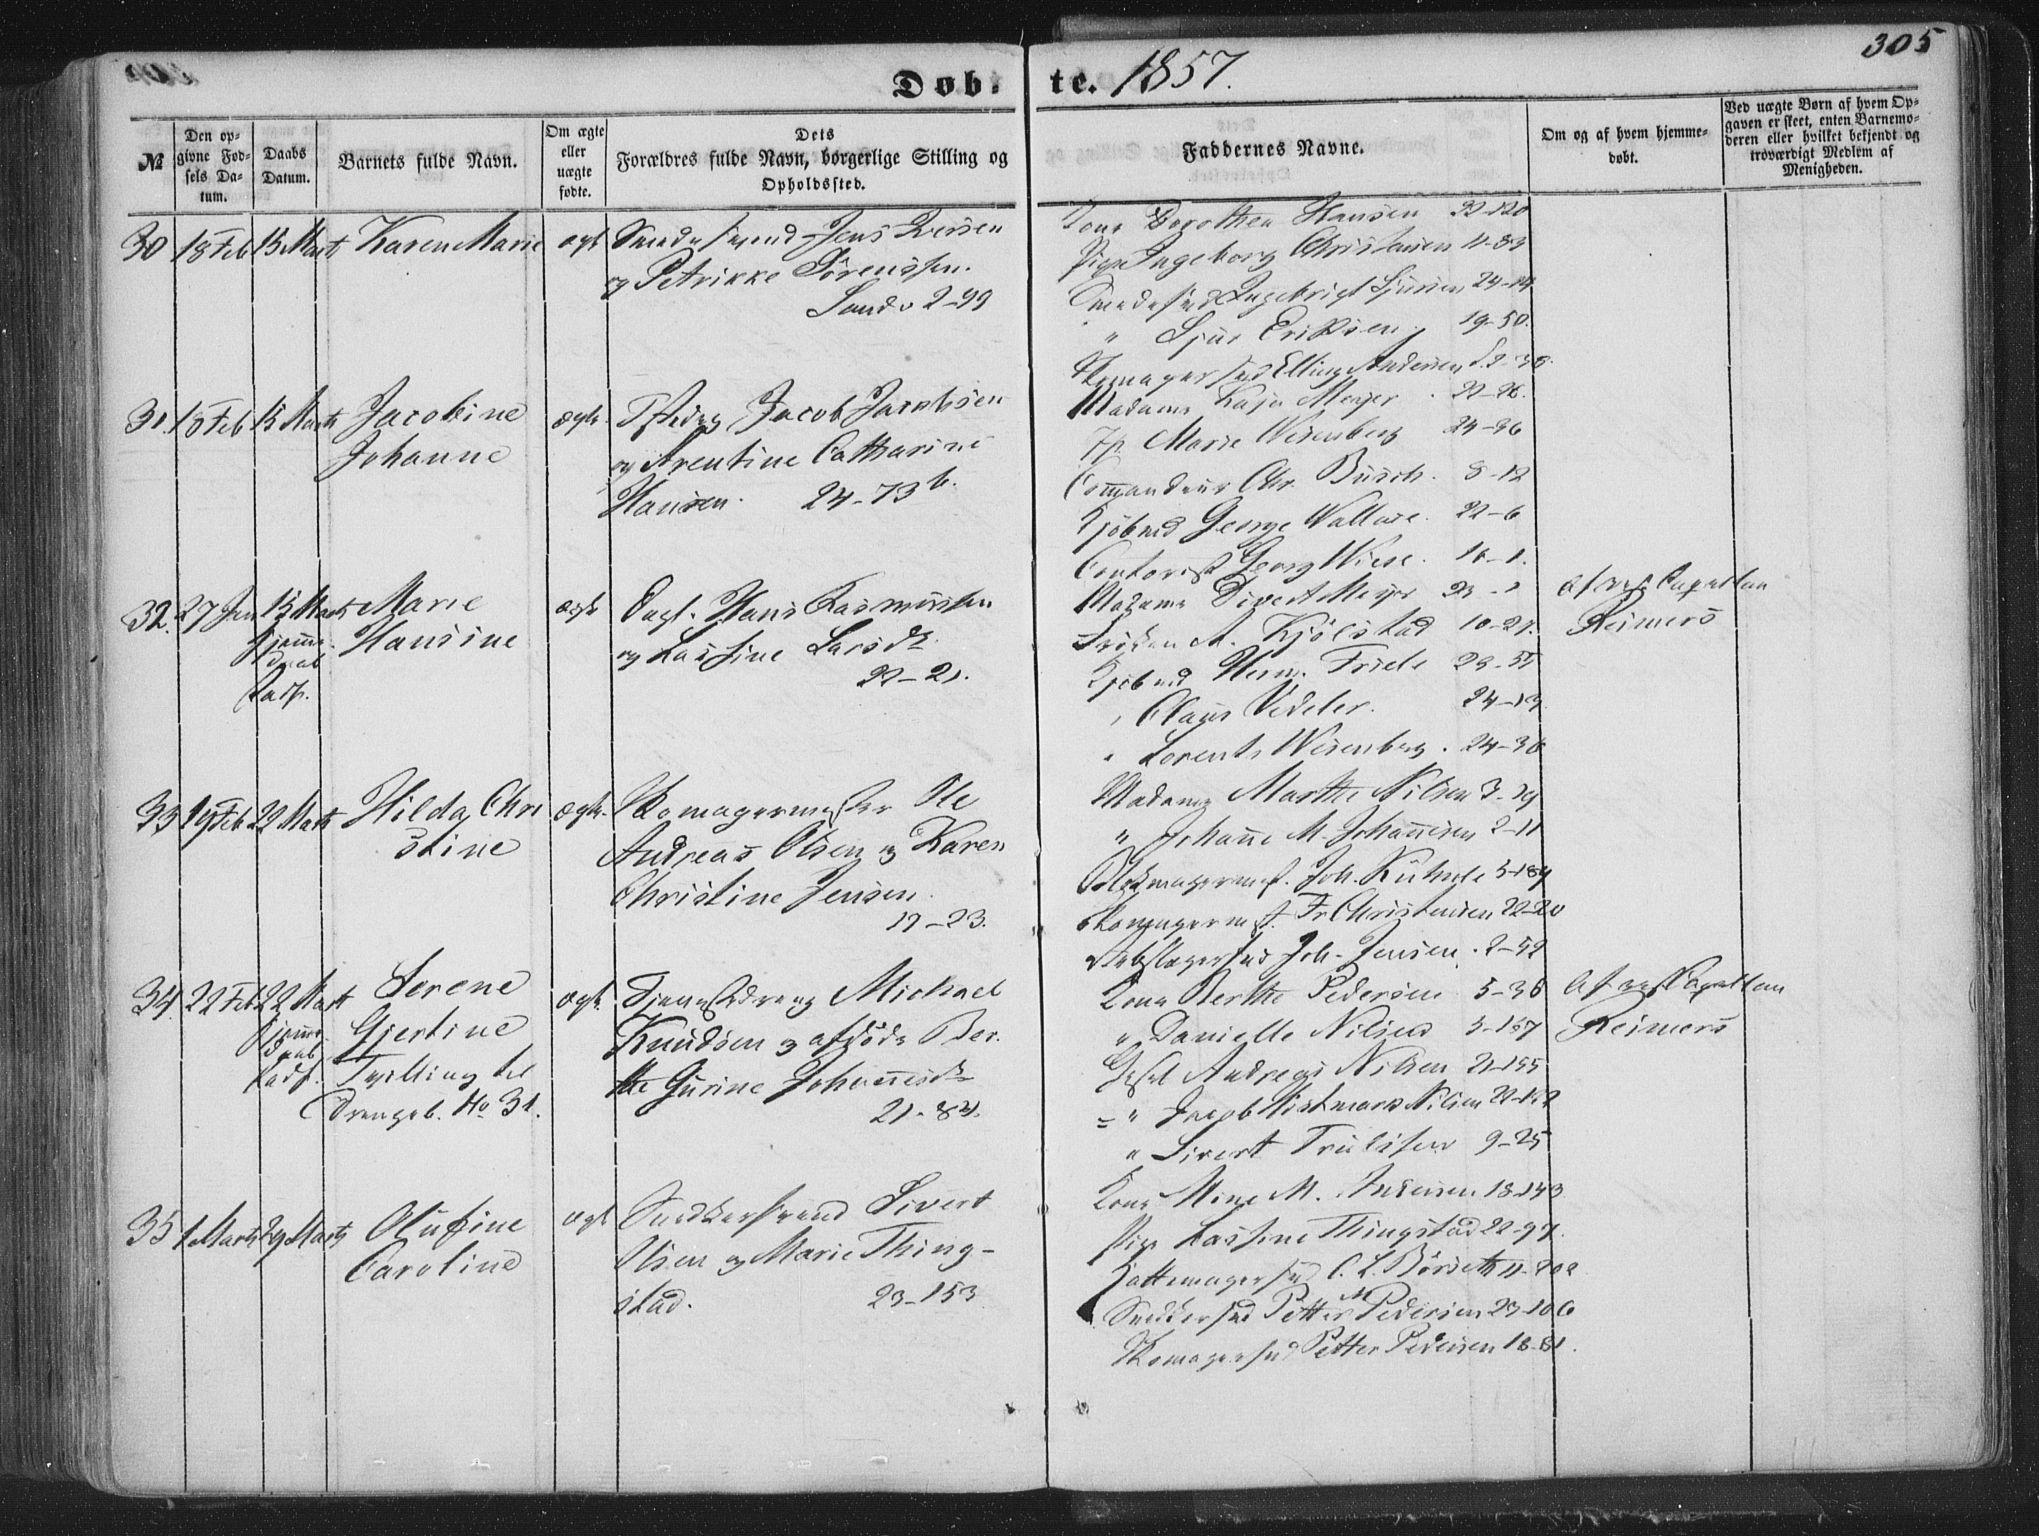 305
Døb- te. 1857.
№
Den op-
givne Fød-
sels Da-
tum.
Daabs
Datum.
Barnets fulde Navn.
Om ægte
eller
uægte
fødte.
Dets
Forældres fulde Navn, borgerlige Stilling og
Opholdssted.
Faddernes Navne.
Om og af hvem hjemme-
døbt.
Ved uægte Børn af hvem Op-
gaven er skeet, enten Barnemo-
deren eller hvilket bekjendt og
troværdigt Medlem af
Menigheden.
30 18 Feb 15 Marts Karen Marie ægte Smedesvend Jens Iversen
og Petrikke Sørenssen.
Sandv 2-99
Kone Dorothea Hansen 22-120
Pige Ingeborg Christensen 11-83
Smedesvd Ingebrigt Sjursen 24-
" Sjur Eriksen 19-50.
Skomagersvd Elling Andersen
31. 18 Feb 15 Marts Jacobine
Johanne
ægte Jacob Jacobsen
og Arentine Catharine
Hansen. 24-73 b.
Madame Kaja Meyer. 22-26.
Jf. Marie Wesenberg 24-36
Commandeur Chr. Busch. 8-12
Kjøbmd George Wallace. 22-6
Contorist Georg Wiese. 16-1.
32. 27 Jan 15 Marts
Hjemme-
daab
stadf.
Marie
Hansine
ægte Dagl. Hans Rasmussen
og Larsine Larsdtr
22-21.
Madame Sivert Meyer 23-
Frøken A. Kjølstad 10-21.
Kjøbmd Herm. Friele 23-55
" Claus Vedeler. 24-19
" Lorentz Wesenberg. 24-36
af res. Capellan
Reimers
33 19 Feb 22 Marts Hilda Chri
stine
ægte. Skomagermester Ole
Andreas Olsen og Karen
Christine Jensen.
17-23.
Madame Marthe Nilsen 3-29
" Johanne M. Johannesen 2-11
Blokmagermst. Joh. Kühnle 5-184
Skomagermst. Fr Christensen 22-20
Joh. Jensen. 2-52
34. 22 Feb 22 Marts
Hjemme-
daab
stadf.
Serene
Gjertine
Tvilling til
Drengeb. No 31.
ægte. Tjenestedreng Michael
Knudsen og afdøde Ber-
the Gurine Johannesdtr
21-83.
Kone Berthe Pedersen 5-36
" Danielle Nilsen 5-157
Andreas Nilsen 21-155
" Jacob Nilsen 22-152
" Sivert Trulssen 9-25
af res Capellan
Reimers
35 1 Marts 29 Marts Olufine
Caroline
ægte Snedkersvend Sivert
Olsen og Marie Thing-
stad. 23-153
Kone Mine M. Andersen 18-143
Pige Larsine Thingstad 22-97.
Hattemagersvd C. L. Børseth 11-202
Snedkersvd Petter M Pedersen 23-106
Skomagersvd Petter Pedersen 18-81.